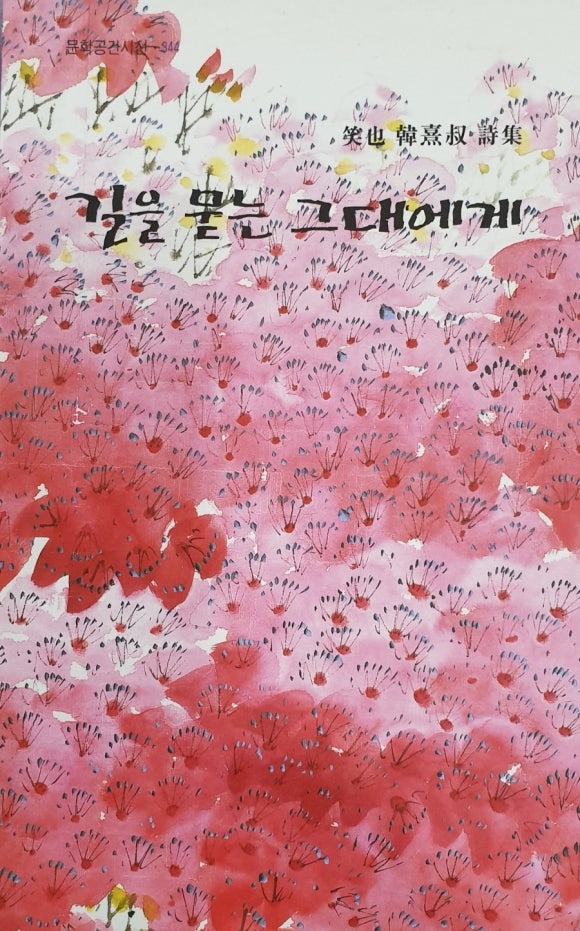 문학공간시선-344
笑也 韓熹叔 詩集
길을 묻는 그대에게